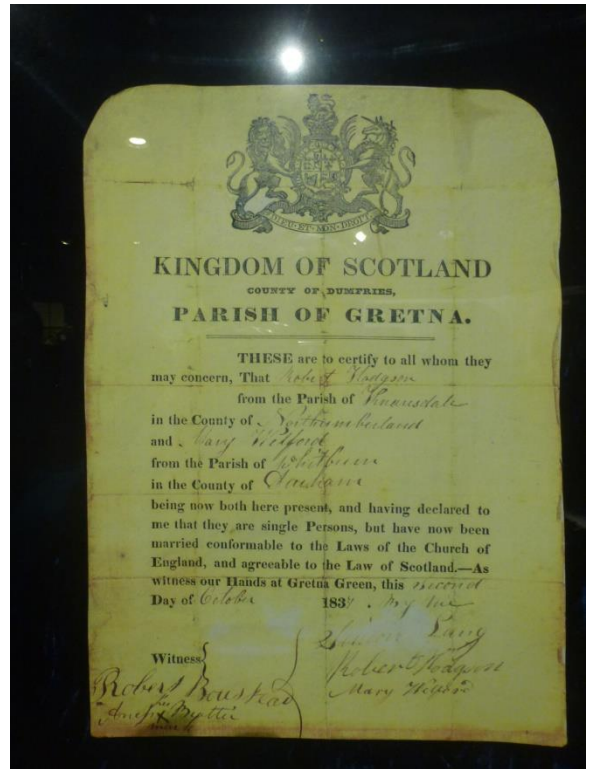 DIEU·ET·MON·DROIT
KINGDOM OF SCOTLAND
COUNTY OF DUMFRIES,
PARISH OF GRETNA.
THESE are to certify to all whom they
may concern, That Robert Hodgson
from the Parish of
in the County of Northumberland
and Mary
from the Parish of Whitburn
in the County of Durham
being now both here present, and having declared to
me that they are single Persons, but have now been
married conformable to the Laws of the Church of
England, and agreeable to the Law of Scotland.—As
witness our Hands at Gretna Green, this second
Day of October 1837. By me
Lang
Witness
Robert Hodgson
Robert
Mary